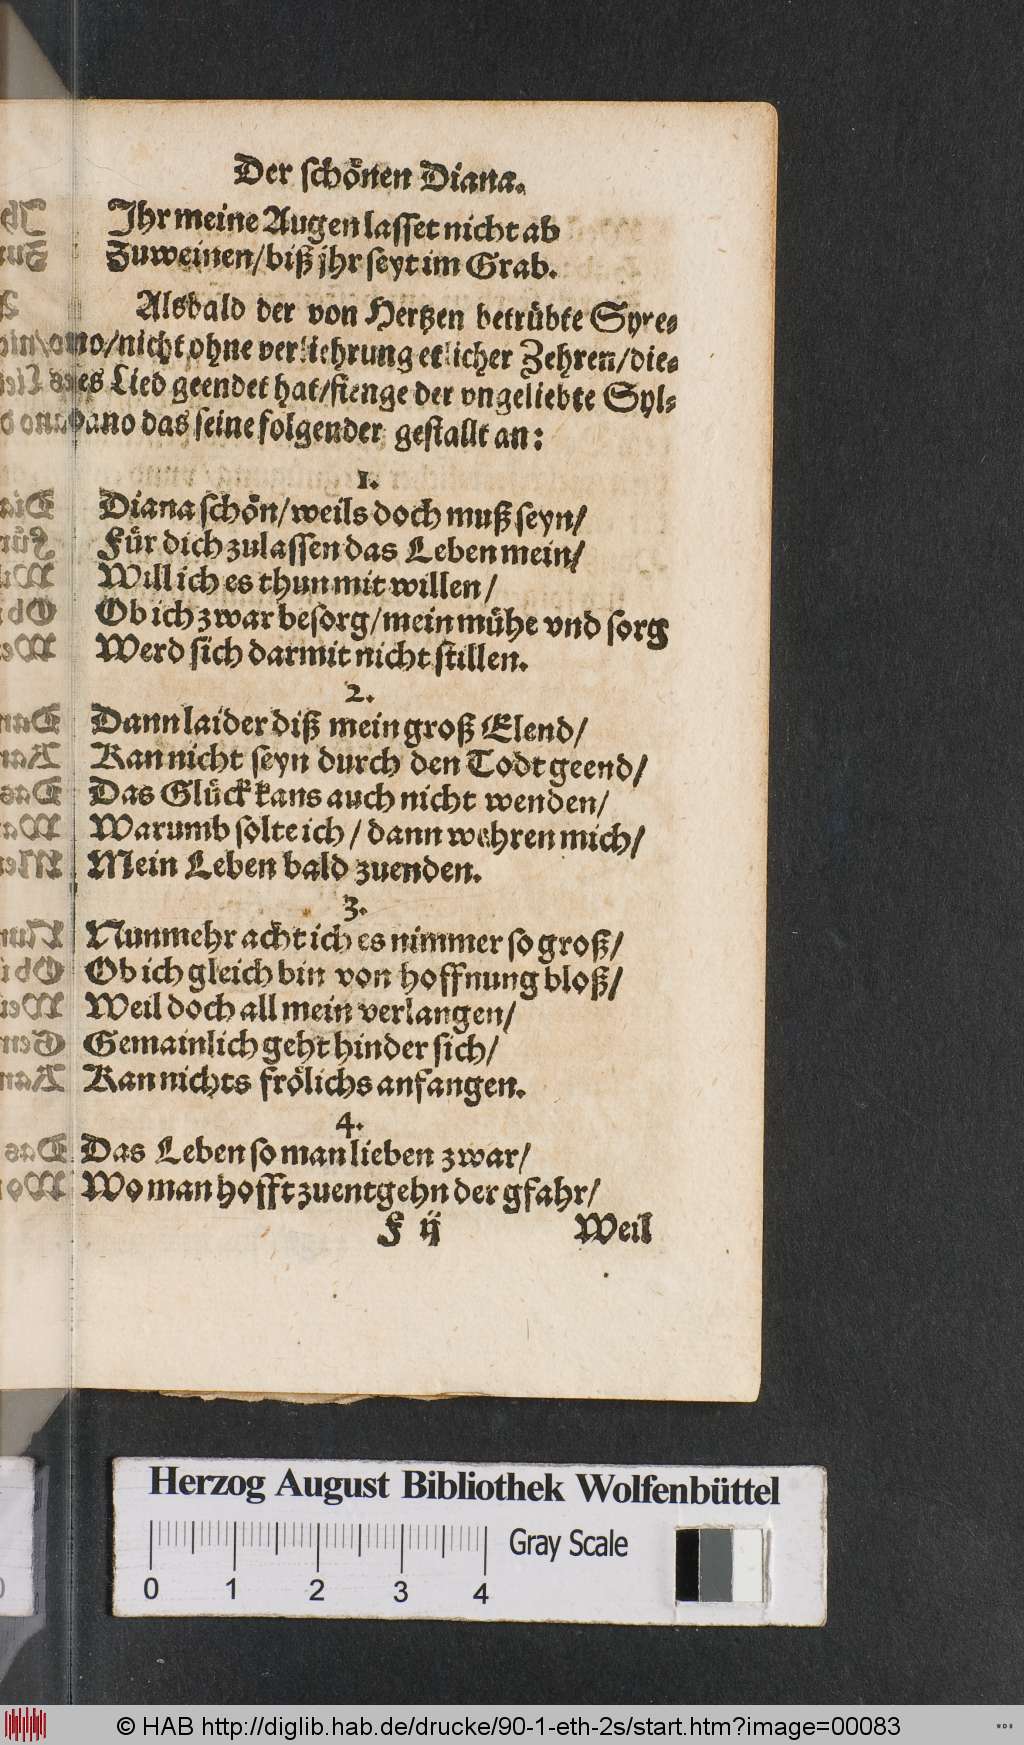 Der schönen Diana.
Ihr meine Augen lasset nicht ab
Zuweinen/ biß jhr seyt im Grab.
Alsbald der von Hertzen betrübte Syre-
no/ nicht ohne verliehrung etlicher Zehren/ die-
ses Lied geendet hat/ fienge der vngeliebte Syl-
vano das seine folgender gestallt an:
1.
Diana schön/ weils doch muß seyn/
Für dich zulassen das Leben mein/
Will ich es thun mit willen/
Ob ich zwar besorg/ mein mühe vnd sorg
Werd sich darmit nicht stillen.
2.
Dann laider diß mein groß Elend/
Kan nicht seyn durch den Todt geend/
Das Glück kans auch nicht wenden/
Warumb solte ich/ dann wehren mich/
Mein Leben bald zuenden.
3.
Nunmehr acht ich es nimmer so groß/
Ob ich gleich bin von hoffnung bloß/
Weil doch all mein verlangen/
Gemainlich geht hinder sich/
Kan nichts frölichs anfangen.
4.
Das Leben so man lieben zwar/
Wo man hofft zuentgehn der gfahr/
F ij Weil
Herzog August Bibliothek Wolfenbüttel
Gray Scale
0 1 2 3 4
© HAB http://diglib.hab.de/drucke/90-1-eth-2s/start.htm?image=00083